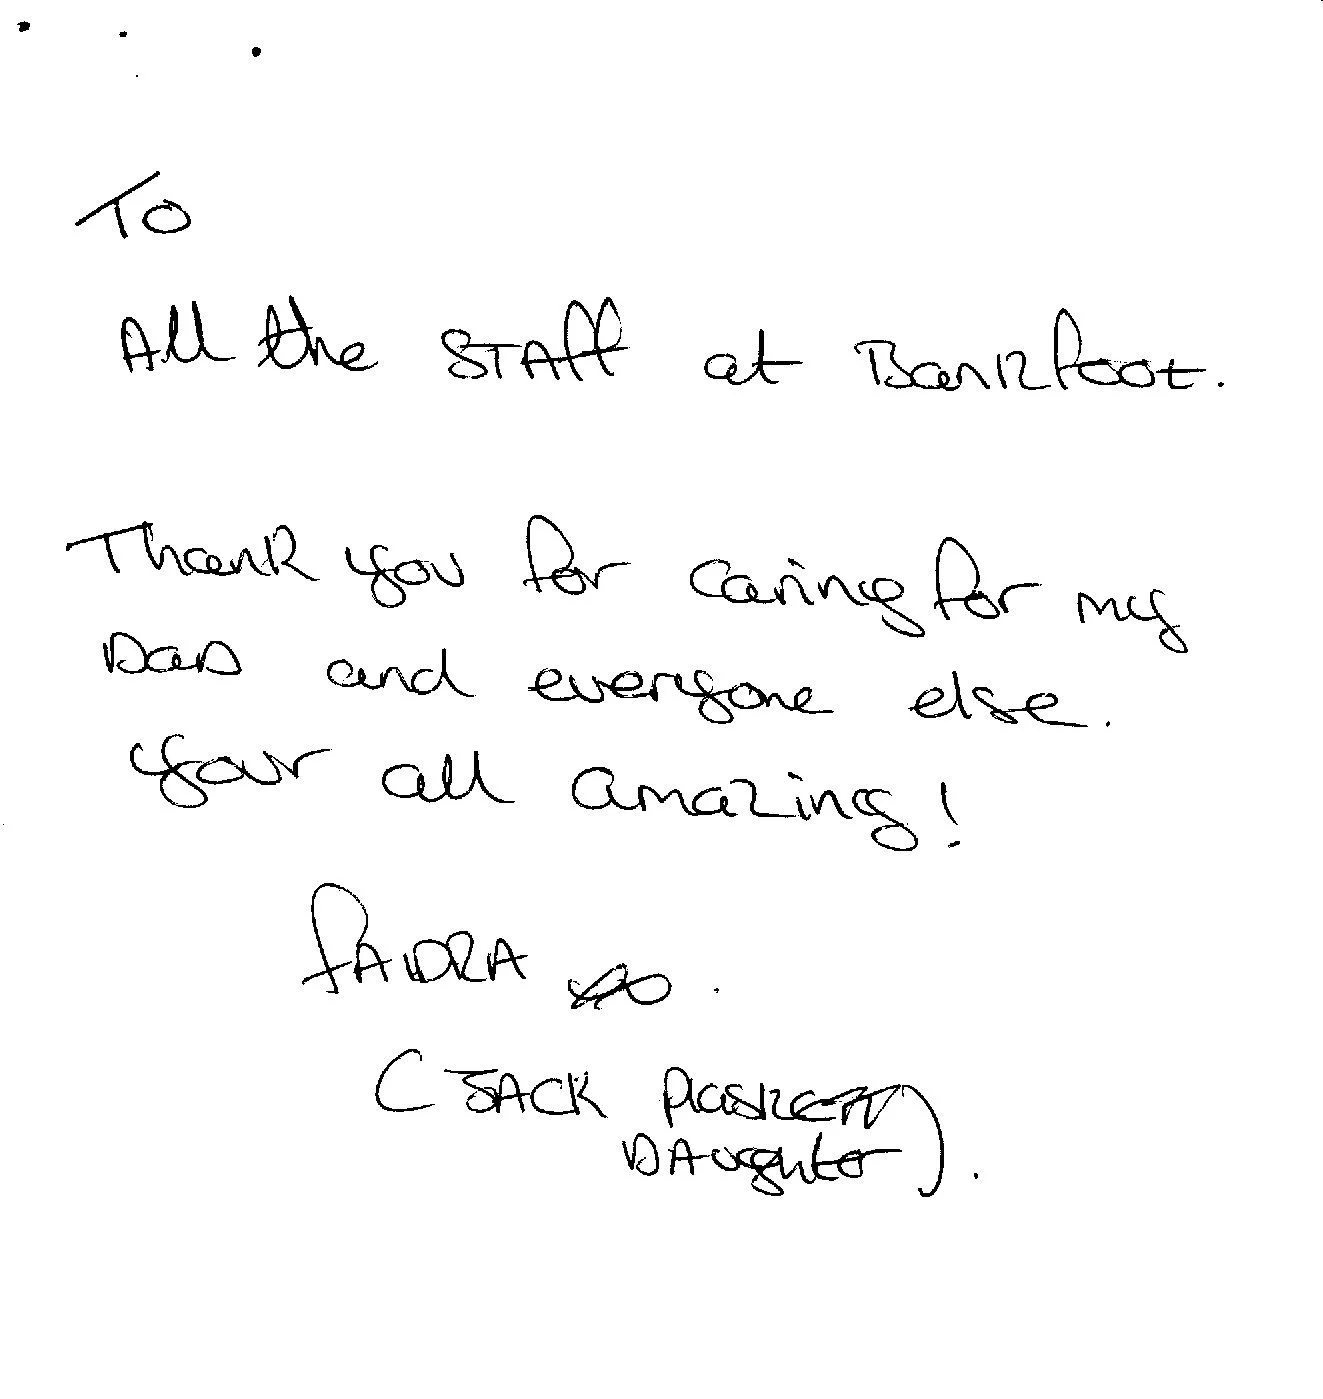 To
All the STAff at Bankfoot.
Thank you for caring for my
DaD and everyone else.
your all amazing!
fAIDRA
(JACK PlasKETT
DAughter).